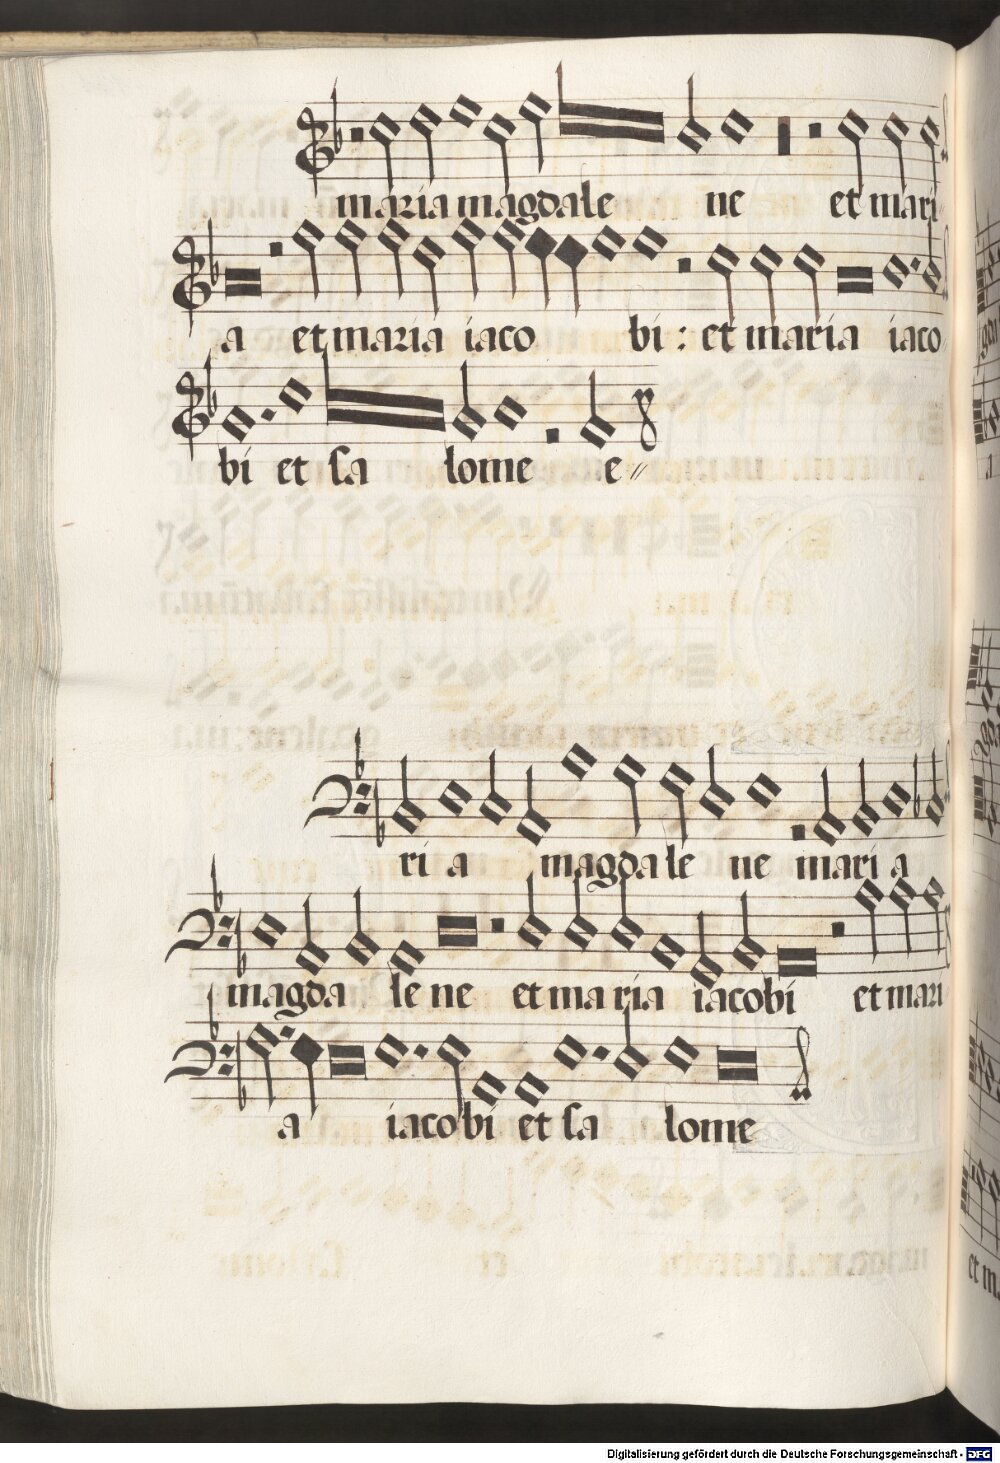 maria magdale ne et mari
a et maria iaco bi : et maria iaco
bi et sa lome e
ri a magdale ne mari a
magda le ne et ma ria iacobi et mari
a iaco bi et sa lome
Digitalisierung gefördert durch die Deutsche Forschungsgemeinschaft - DFG